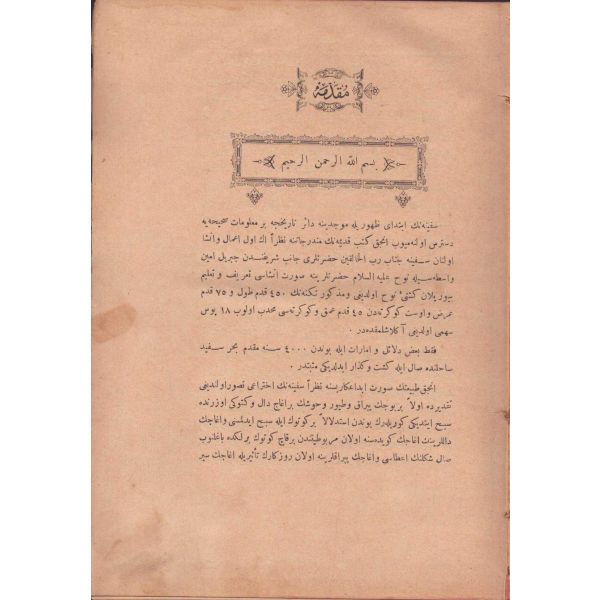 مقدمه
بسم الله الرحمن الرحيم
سفينه‌نك ابتداى ظهوريله موجدينه دائر تاريخجه بر معلومات صحيحه‌يه
دسترس اولنه‌ميوب انجق كتب قديمه‌نك مندرجاتنه نظراً اك اول اعمال وانشا
اولنان سفينه جناب رب الخالقين حضرتلرى جانب شريفندن جبريل امين
واسطه‌سيله نوح عليه السلام حضرتلرينه صورت انشاسى تعريف و تعليم
بيوريلان كشتئ نوح اولديغى ومذكور تكنه‌نك ٤٥٠ قدم طول و ٧٥ قدم
عرض واوست كوكرته‌دن ٤٥ قدم عمق وكوكرته‌سى محدب اولوب ١٨ پوس
سهمى اولديغى آكلاشلمقده‌در .
فقط بعض دلائل و امارات ايله بوندن ٤٠٠٠ سنه مقدم بحر سفيد
ساحلنده صال ايله كشت وكذار ايدلديكى مثبتدر .
انجق طبيعتك صورت ابداعكاريسنه نظراً سفينه‌نك اختراعى تصور اولنديغى
تقديرده اولا بر بوجك يپراق وطيور وحوشك بر اغاج دال وكتوكى اوزرنده
سبح ايتديكى كوريله‌رك بوندن استدلالاً بر كوتوك ايله سبح ايدلمسى واغاجك
داللرينك اغاجك كوده‌سنه اولان مربوطيتندن بر قاچ كوتوك بر لكده باغلنوب
صال شكلنك اعطاسى واغاجك يپراقلرينه اولان روزكارك تأثيريله اغاجك سير